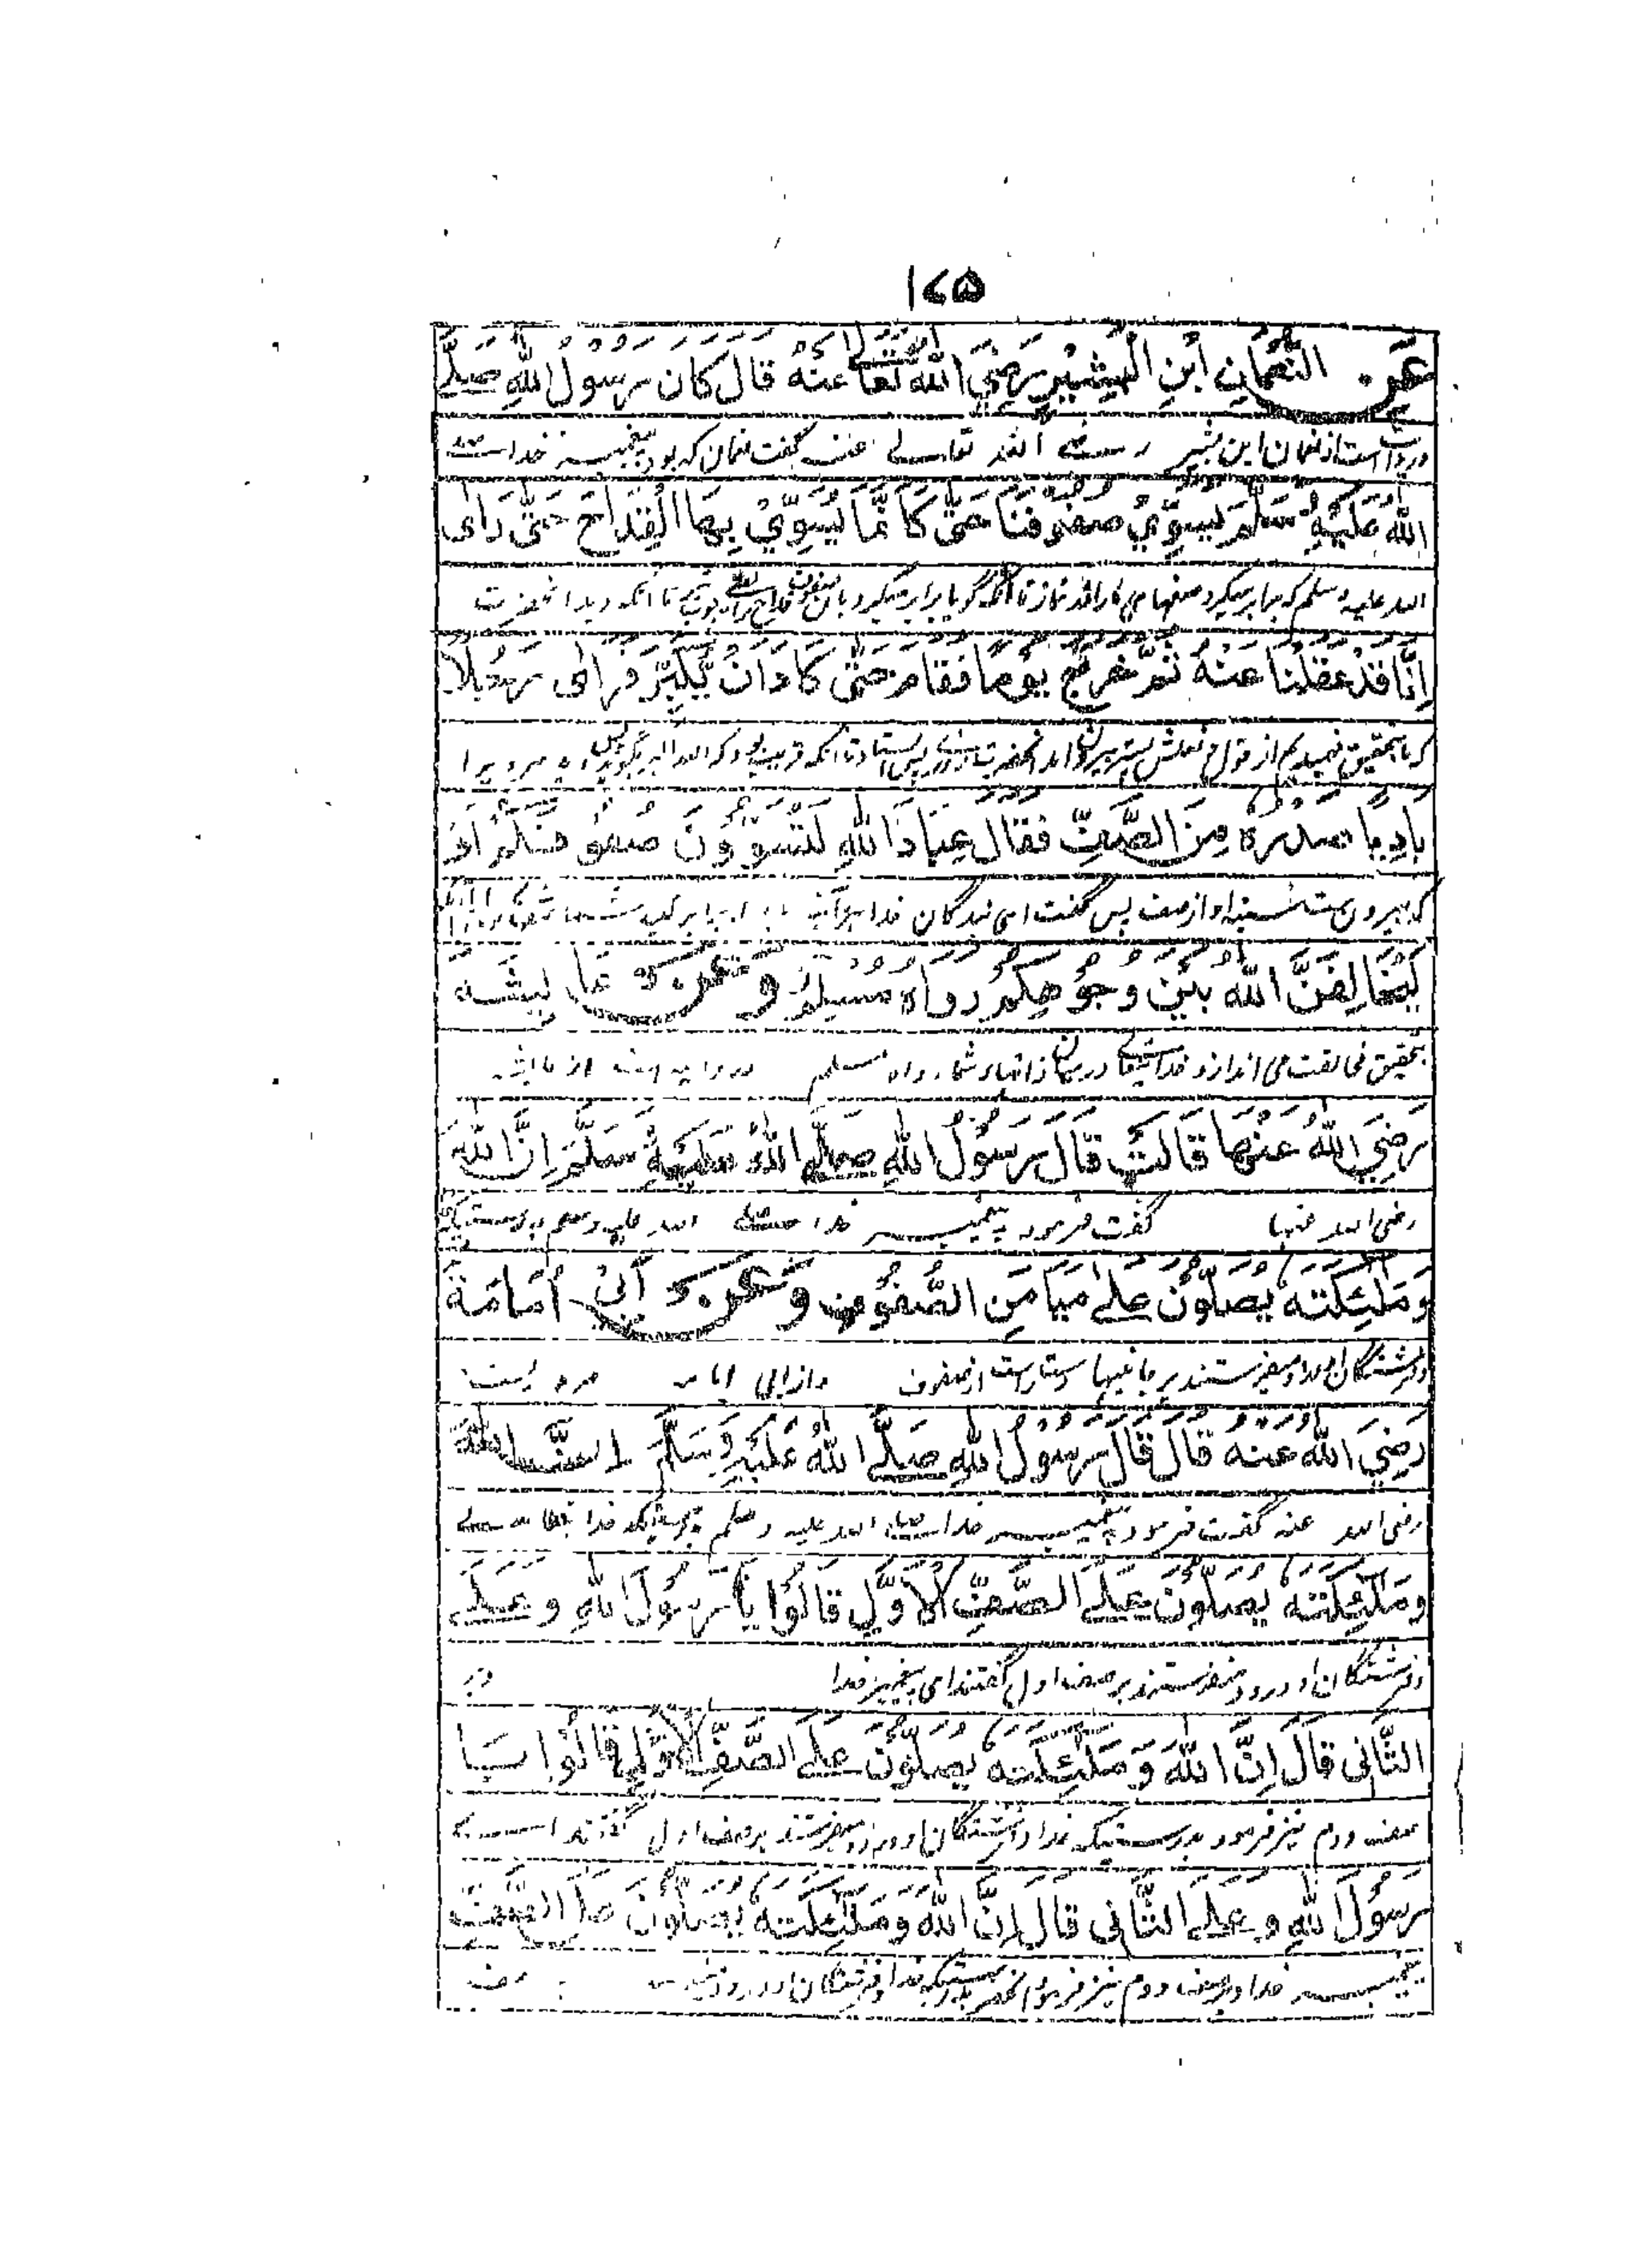 ۱۷۵
عَنِ النُّعْمَانِ ابْنِ الْبَشِيْرِ رَضِيَ اللهُ تَعَالٰى عَنْهُ قَالَ كَانَ رَسُولُ اللهِ صَلَّى
روایت است از نعمان ابن بشیر رضے اللہ تعالے عنہ گفت نعمان کہ بود پیغمبر خدا صلے
اللهُ عَلَيْهِ وَسَلَّمَ يُسَوِّيْ صُفُوْفَنَا حَتّٰى كَاَنَّمَا يُسَوِّيْ بِهَا الْقِدَاحَ حَتّٰى رَاٰى
اللہ علیہ وسلم کہ برابر میکرد صفہای مارا نماز تا آنکہ گویا برابر میکرد بآن تا آنکہ دید آنحضرت
اَنَّا قَدْ عَقَلْنَا عَنْهُ ثُمَّ خَرَجَ يَوْمًا فَقَامَ حَتّٰى كَادَ اَنْ يُّكَبِّرَ فَرَاٰى رَجُلًا
کہ ما بتحقیق فہمیدیم از قول و فعلش پستر بیرون آمد آنحضرت روزی پس استاد تا آنکہ قریب بود کہ اللہ اکبر بگوید پس مردیرا
بَادِيًا صَدْرُهُ مِنَ الصَّفِّ فَقَالَ عِبَادَ اللهِ لَتُسَوُّوْنَ صُفُوْفَكُمْ اَوْ
کہ بیرون ست سینہ او از صف پس گفت ای بندگان خدا برابر کنید شما
لَيُخَالِفَنَّ اللهُ بَيْنَ وُجُوْهِكُمْ رواه مسلم وَعَنْ عَائِشَه
بتحقیق مخالفت می اندازد خدایتعالے درمیان ذاتہاء شما رواہ مسلم و روایت است از عائشہ
رَضِيَ اللهُ عَنْهَا قَالَتْ قَالَ رَسُوْلُ اللهِ صَلَّى اللهُ عَلَيْهِ وَسَلَّمَ اِنَّ اللهَ
رضی اللہ عنہا گفت فرمود پیغمبر خدا صلے اللہ علیہ وسلم بدرستیکہ
وَمَلٰئِكَتَهُ يُصَلُّوْنَ عَلٰى مَيَامِنِ الصُّفُوْفِ وَعَنْ اَبِيْ اُمَامَةَ
وفرشتگان او درود میفرستند بر جانبہا راست از صفوف و از ابی امامہ مرویست
رَضِيَ اللهُ عَنْهُ قَالَ قَالَ رَسُوْلُ اللهِ صَلَّى اللهُ عَلَيْهِ وَسَلَّمَ اِنَّ اللهَ
رضی اللہ عنہ گفت فرمود پیغمبر خدا صلے اللہ علیہ وسلم بدرستیکہ خدا تعالے
وَمَلٰئِكَتَهُ يُصَلُّوْنَ عَلَى الصَّفِّ الْاَوَّلِ قَالُوْا يَا رَسُوْلَ اللهِ وَعَلَى
وفرشتگان او درود میفرستند بر صف اول گفتند ای پیغمبر خدا وبر
الثَّانِي قَالَ اِنَّ اللهَ وَمَلٰئِكَتَهُ يُصَلُّوْنَ عَلَى الصَّفِّ الْاَوَّلِ قَالُوْا يَا
صف دوم نیز فرمود بدرستیکہ خدا و فرشتگان او درود میفرستند بر صف اول گفتند اے
رَسُوْلَ اللهِ وَعَلَى الثَّانِي قَالَ اِنَّ اللهَ وَمَلٰئِكَتَهُ يُصَلُّوْنَ عَلَى الصَّفِّ
پیغمبر خدا و بر صف دوم نیز فرمود بدرستیکہ خدا و فرشتگان او درود صف